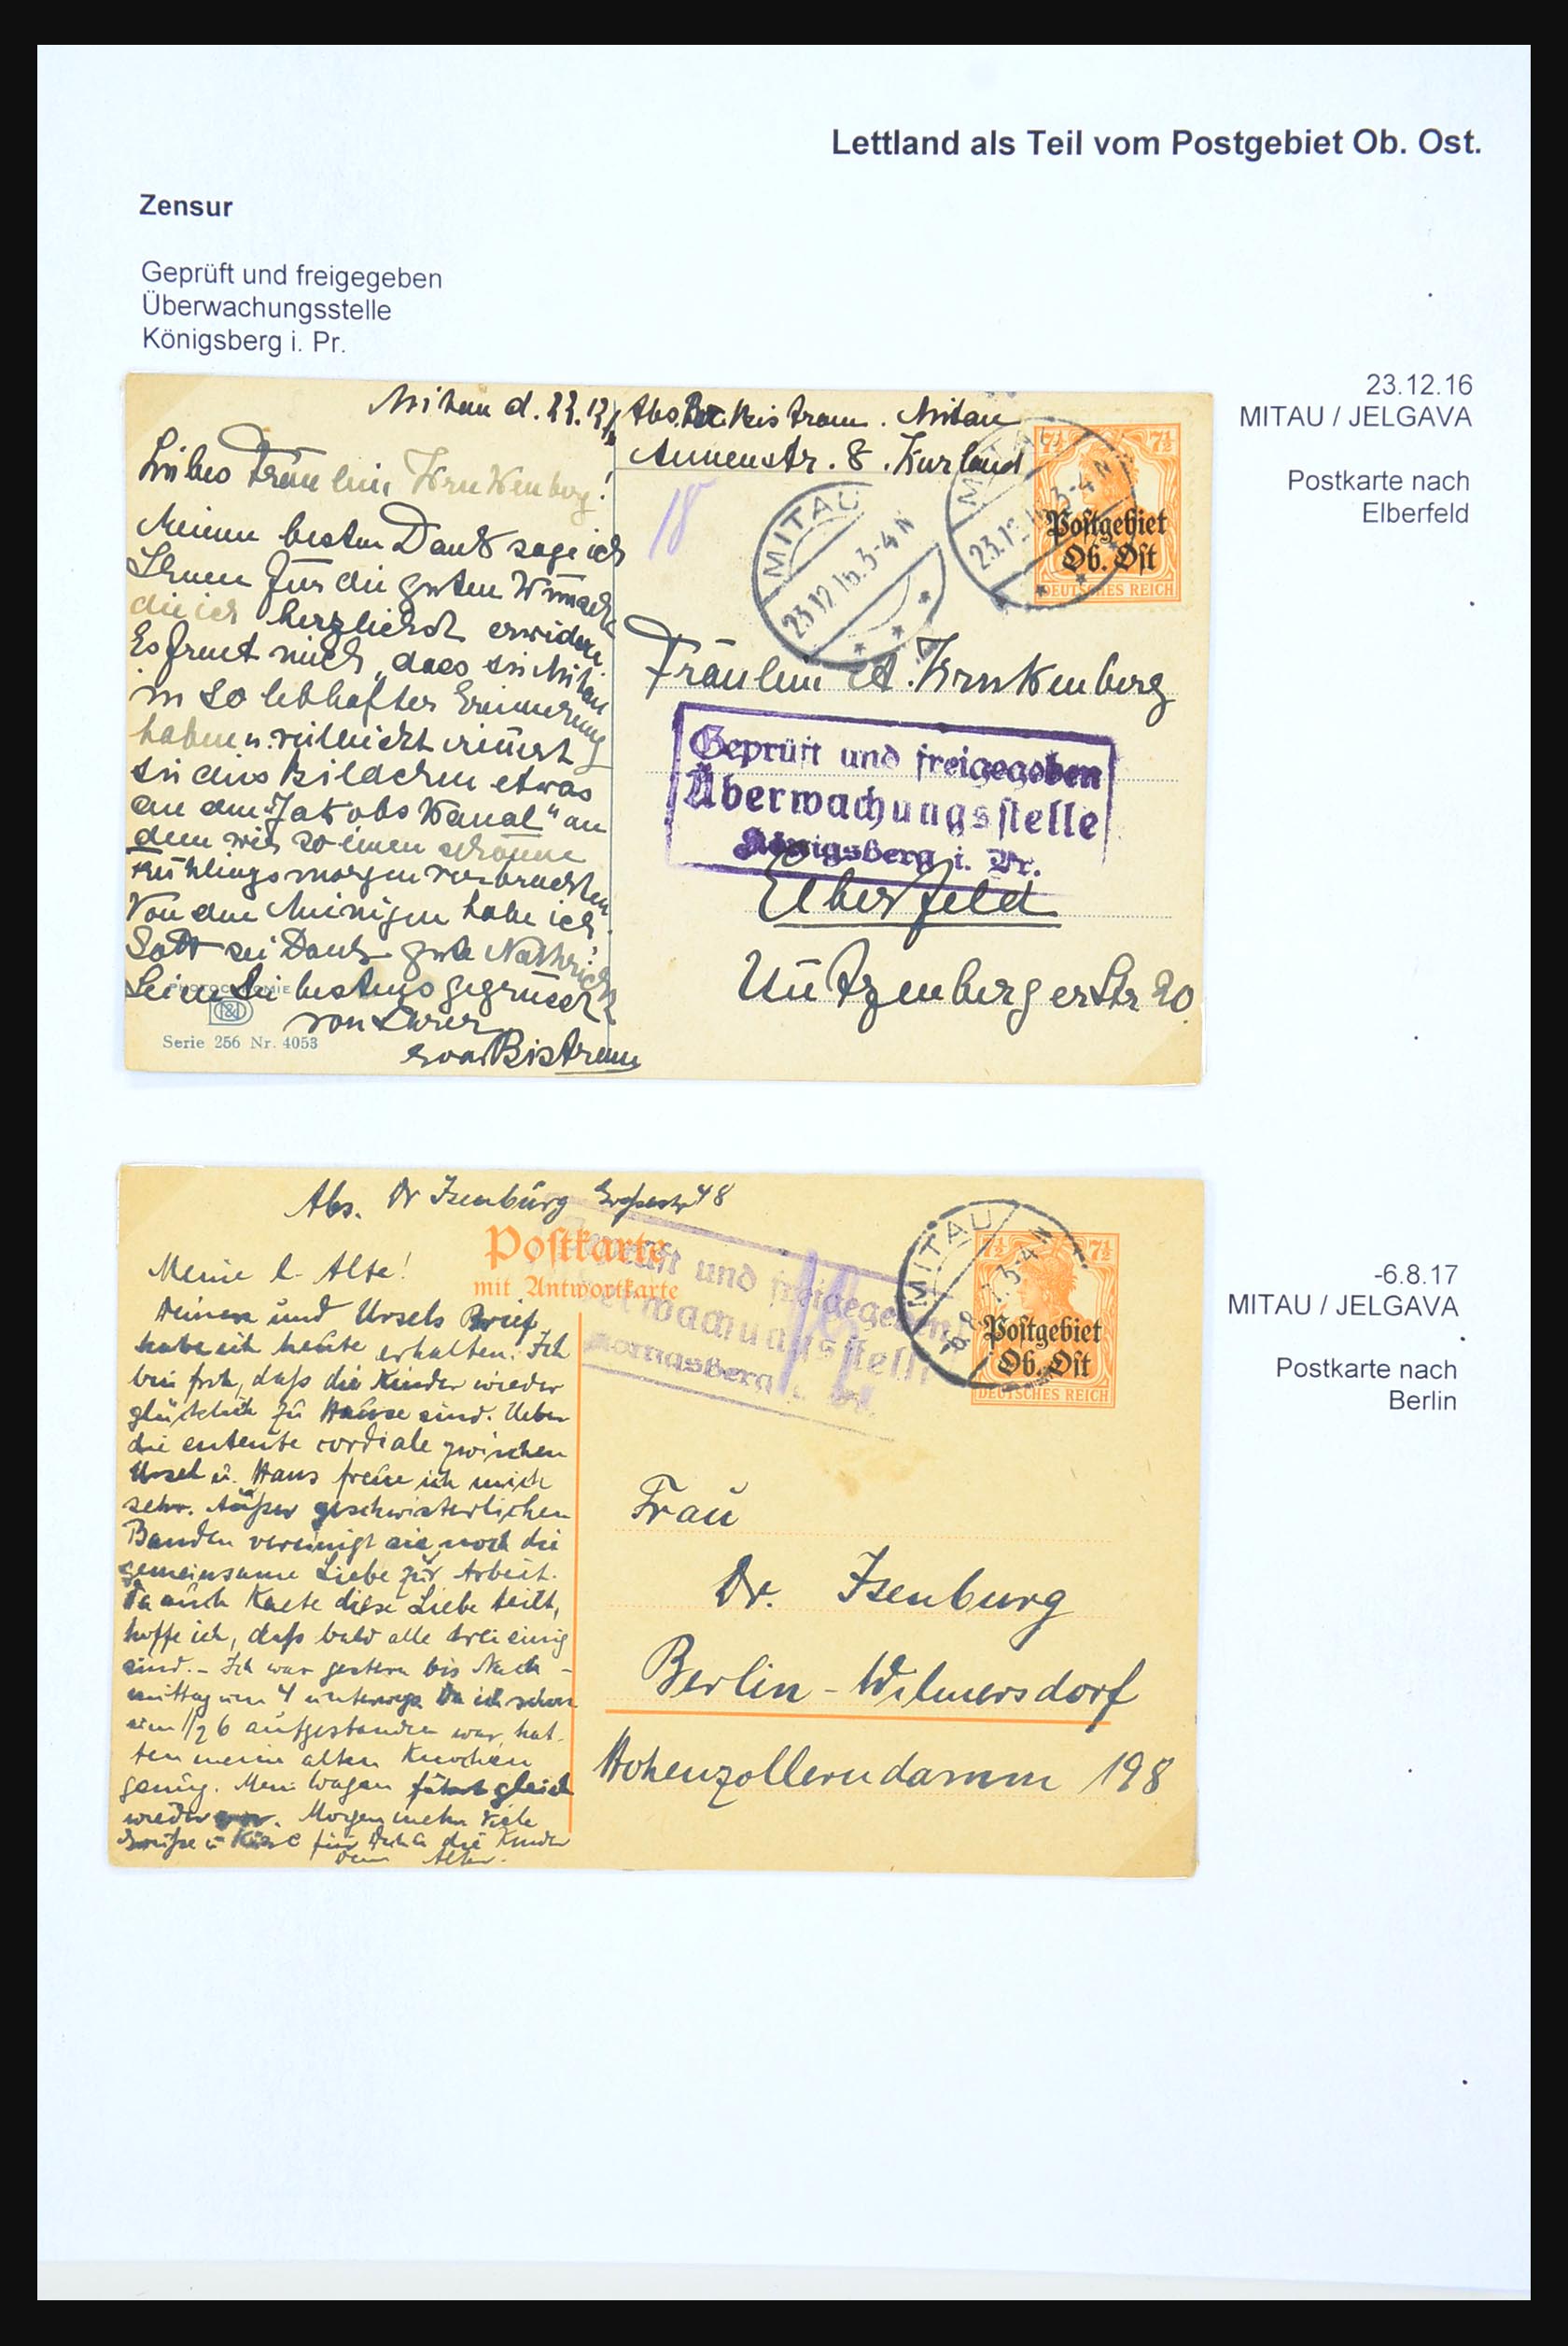 Lettland als Teil vom Postgebiet Ob. Ost.
Zensur
Geprüft und freigegeben
Überwachungsstelle
Königsberg i. Pr.
23.12.16
MITAU / JELGAVA
Postkarte nach
Elberfeld
Mitau d. 22.12
Liebes Fräulein Krukenberg!
Meinen besten Dank sage ich
Ihnen für die guten Wünsche
die ich herzlichst erwidere.
Es freut mich, dass Sie Mitau
in so lebhafter Erinnerung
haben u. vielleicht erinnert
Sie dies Bildchen etwas
an den "Jakobs Kanal" an
dem wir so einen schönen
Frühlingsmorgen verbrachten
Von den Meinigen habe ich
Gott sei Dank gute Nachricht
Seien Sie bestens gegrüsst
von Ihrer
Bistram
PHOTOCHROMIE
Serie 256 Nr. 4053
Abs. Bistram. Mitau
Annenstr. 8. Kurland
18
MITAU
23.12.16.3-4N
MITAU
23.12.16.3-4N
7½ 7½
Postgebiet
Ob. Ost
DEUTSCHES REICH
Fräulein A. Krukenberg
Geprüft und freigegeben
Überwachungsstelle
Königsberg i. Pr.
Elberfeld
Nützenberger Str 20
-6.8.17
MITAU / JELGAVA
Postkarte nach
Berlin
Abs. Dr Isenburg 48
Postkarte
mit Antwortkarte
Geprüft und freigegeben
Überwachungsstelle
Königsberg i. Pr.
MITAU
-6.8.17.3-4N
7½ 7½
Postgebiet
Ob. Ost
DEUTSCHES REICH
Meine l. Alte!
Deinen und Ursels Brief
habe ich heute erhalten. Ich
bin froh, daß die Kinder wieder
glücklich zu Hause sind. Ueber
die entente cordiale zwischen
Ursel u. Hans freue ich mich
sehr. Außer geschwisterlichen
Banden vereinigt sie noch die
gemeinsame Liebe zur Arbeit.
Da auch Kaete diese Liebe teilt,
hoffe ich, daß bald alle drei einig
sind. – Ich war gestern bis Nach-
mittag um 4 unterwegs. Da ich schon
um 1/2 6 aufgestanden war, hat-
ten meine alten Knochen
genug. Mein Wagen fährt gleich
wieder vor. Morgen mehr. Viele
Grüße u. Küsse für Dich u. die Kinder
Dein Alter.
Frau
Dr. Isenburg
Berlin-Wilmersdorf
Hohenzollerndamm 198